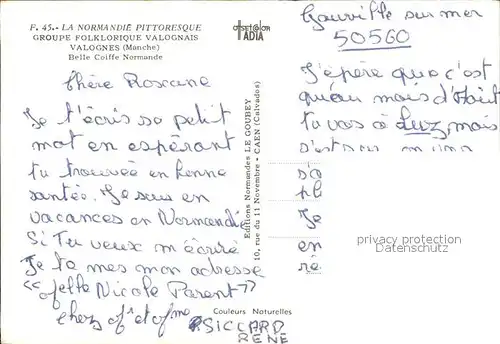 F. 45. - LA NORMANDIE PITTORESQUE
GROUPE FOLKLORIQUE VALOGNAIS
VALOGNES (Manche)
Belle Coiffe Normande
OFFSET COLOR
IADIA
Chère Roseane
Je t'écris se petit
mot en espérant
tu trouvée en bonne
santée. Je suis en
vacances en Normandie
Si Tu veux m'écrire
Je te mes mon adresse
"Melle Nicole Parent"
chez Mr et Mme
SICCARD
RENE
Couleurs Naturelles
Editions Normandes LE GOUBEY
10, rue du 11 Novembre - CAEN (Calvados)
Gouville sur mer
50560
J'épère que c'est
qu'au mois d'Août
tu vas à Luz mais
Je
en
privacy protection
Datenschutz